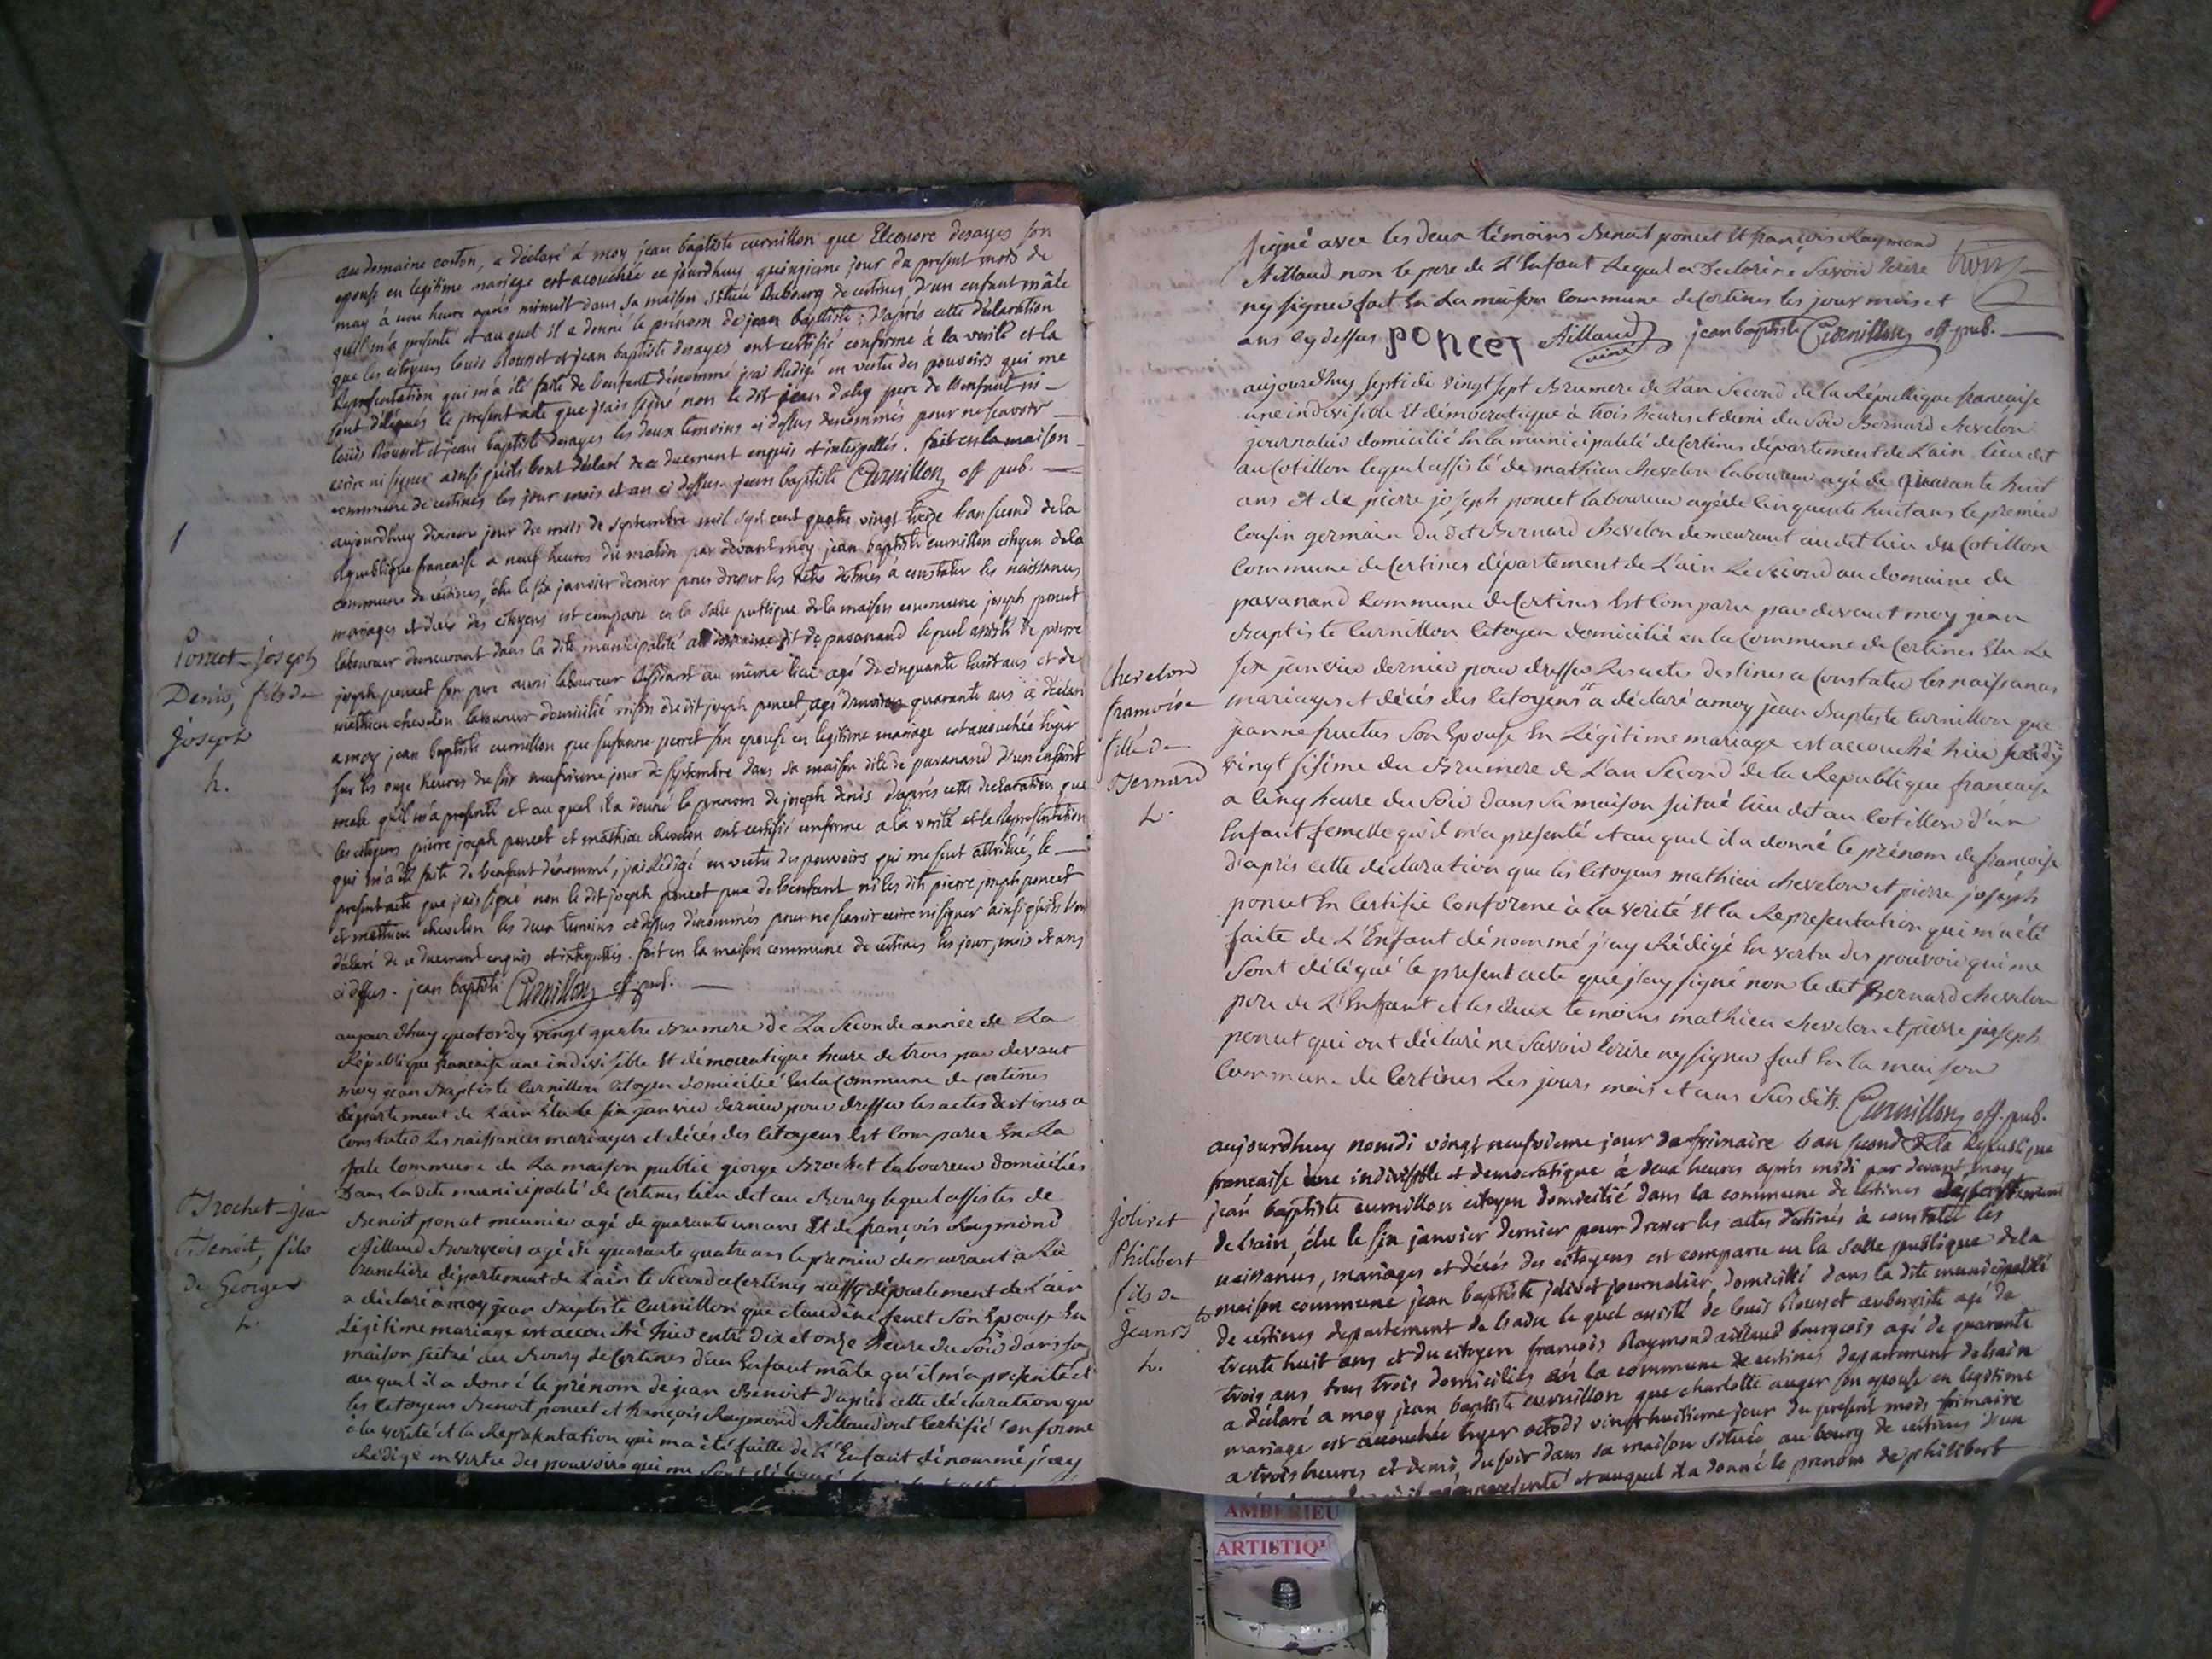 au domaine coston, a déclaré à moy jean baptiste curnillon que Eleonore desayes son
epouse en legitime mariage est acouchée ce jourdhuy quinzieme jour du present mois de
may à une heure après minuit dans sa maison située Aubourg de certines, d'un enfant mâle
qu'il m'a presenté et au quel il a donné le prénom de jean baptiste; d'après cette déclaration
que les citoyens louis Rousset et jean baptiste desayes ont certifié conforme à la verité et la
Representation qui m'a été faite de l'enfant dénommé j'ai Redigé en vertu des pouvoirs qui me
sont délegués le present acte que j'ais signé non le dit jean pere de l'enfant ni
louis Rousset et jean baptiste desayes les deux temoins ci dessus denommés pour ne scavoir
ecrire ni signer ainsi qu'ils l'ont déclaré de ce duement enquis et interpellés. fait en la maison
commune de certines les jour mois et an ci dessus. jean baptiste Curnillon off pub.
1
aujourdhuy dixieme jour du mois de septembre mil sept cent quatre vingt treize l'an second de la
Republique francaise a neuf heures du matin par devant moy jean baptiste curnillon citoyen de la
commune de certines, élu le six janvier dernier pour dresser les actes destinés à constater les naissances
mariages et décès des citoyens est comparu en la salle publique de la maison commune joseph poncet
laboureur demeurant dans la dite municipalité au domaine dit de pavanand lequel assisté de pierre
Poncet joseph
Denis, fils de
Joseph
h.
joseph poncet son pere aussi laboureur Residant au même lieu agé de cinquante huit ans et de
mathieu chevelon laboureur domicilié voisin du dit joseph poncet agé quarante ans a déclaré
a moy jean baptiste curnillon que susanne perret son epouse en legitime mariage est accouchée hyer
sur les onze heures du soir neufvieme jour de septembre dans sa maison dite de pavanand d'un enfant
male qu'il m'a presenté et au quel il a donné le prenom de joseph denis d'après cette declaration que
les citoyens pierre joseph poncet et mathieu chevelon ont certifié conforme a la verité et la Representation
qui m'a été faite de l'enfant dénommé, j'ai Rédigé en vertu des pouvoirs qui me sont attribué, le
present acte que j'ais signé non le dit joseph poncet pere de l'enfant ni les dits pierre joseph poncet
et mathieu chevelon les deux temoins ci dessus denommés pour ne scavoir ecrire ni signer ainsi qu'ils l'ont
déclaré de ce duement enquis et interpellés. fait en la maison commune de certines les jour, mois et ans
ci dessus. jean baptiste Curnillon off pub.
aujourdhuy quatordy vingt quatre Brumere de La Seconde année de La
République francaise une indivisible Et démocratique heure de trois par devant
moy jean Baptiste Curnillon Citoyen domicilié En la Commune de Certines
département de L'ain Elu le six janvier dernier pour dresser les actes destines a
Constater Les naissances mariages et décés des Citoyens Est Comparu En La
sale Commune de La maison public giorge Brochet laboureur domiciliés
Dans la dite municipalité de Certines lieu dit au Bourg lequel assistés de
Brochet jean
Benoit, fils
de George
h.
Benoit poncet meunier agé de quarante un ans Et de françois Raymond
Aillaud Bourgeois agé de quarante quatre ans le premier demeurant a La
tranclière département de L'ain le Second a Certines aussy département de L'ain
a déclaré à moy jean Baptiste Curnillon que Claudine fenet Son Epouse En
Légitime mariage est accouché hier entre dix et onze heure du Soir dans sa
maison situé au Bourg de Certines d'un Enfant mâle qu'il m'a présenté et
au quel il a donné le prénom de jean Benoit d'après cette déclaration que
les Citoyens Benoit poncet et françois Raymond Aillaud ont Certifié Conforme
à la verité et la Représentation qui m'a été faitte de L'Enfant dénommé j'ay
Rédigé en vertu des pouvoirs qui me sont délegué
Signé avec les deux témoins Benoit poncet Et françois Raymond
Aillaud non le pere de L'Enfant Lequel a Declaré ne Savoir Ecrire
trois
ny signer fait En La maison Commune de Certines les jour mois et
ans cy dessus PONCET Aillaud jean baptiste Curnillon off pub.
aujourdhuy septidi vingt sept Brumere de L'an Second de la République francaise
une indivisible Et démocratique à trois heures et demi du Soir Bernard chevelon
journalier domicilié En la municipalité de Certines département de L'ain lieu dit
au Cotillon lequel assisté de mathieu chevelon laboureur agé de quarante huit
ans et de pierre joseph poncet laboureur agé de Cinquente huit ans le premier
Cousin germain du dit Bernard chevelon demeurant au dit lieu du Cotillon
Commune de Certines département de L'ain Le Second au domaine de
pavanand Commune de Certines Est Comparu par devant moy jean
Baptiste Curnillon Citoyen domicilié en la Commune de Certines Elu Le
Chevelon
francoise
fille de
Bernard
h.
six janvier dernier pour dresser Les actes destines a Constater les naissances
mariages et décés des Citoyens et a déclaré a moy jean Baptiste Curnillon que
jeanne fructus Son Epouse En Légitime mariage est accouché hier
vingt sisième du Brumere de L'an Second de la Republique francaise
a Cinq heure du Soir dans Sa maison situé lieu dit au Cotillon d'un
Enfant femelle qu'il m'a presenté et au quel il a donné le prénom de francoise
d'après cette déclaration que les Citoyens mathieu chevelon et pierre joseph
poncet En Certifié Conforme à la verité Et la Representation qui m'a été
faite de L'Enfant dénommé j'ay Rédigé En vertu des pouvoir qui me
Sont délégué le present acte que j'ay signé non le dit Bernard chevelon
pere de L'Enfant et les deux temoins mathieu chevelon et pierre joseph
poncet qui ont déclaré ne Savoir Ecrire ny signer fait En la maison
Commune de Certines Les jours mois et ans Sus dits. Curnillon off. pub.
aujourdhuy nonidi vingt neufvieme jour de frimaire l'an second de la Republique
francaise une indivisible et democratique à deux heures après midi par devant moy
jean baptiste curnillon citoyen domicilié dans la commune de certines departement
Jolivet
Philibert
fils de
Jean Bte
h.
de l'ain, élu le six janvier dernier pour dresser les actes destinés à constater les
naissances, mariages et décés des citoyens est comparu en la salle publique de la
maison commune jean baptiste jolivet journalier, domicilié dans la dite municipalité
de certines departement de l'ain le quel assisté de louis Rousset aubergiste agé de
trente huit ans et du citoyen francois Raymond aillaud bourgeois agé de quarante
trois ans tous trois domiciliés en la commune de certines departement de l'ain
a déclaré a moy jean baptiste curnillon que charlotte auger son epouse en legitime
mariage est accouchée hyer octodi vingt huitieme jour du present mois frimaire
a trois heures et demi du soir dans sa maison située au bourg de certines d'un
presenté et auquel il a donné le prenom de philibert
AMBERIEU
ARTISTIQ